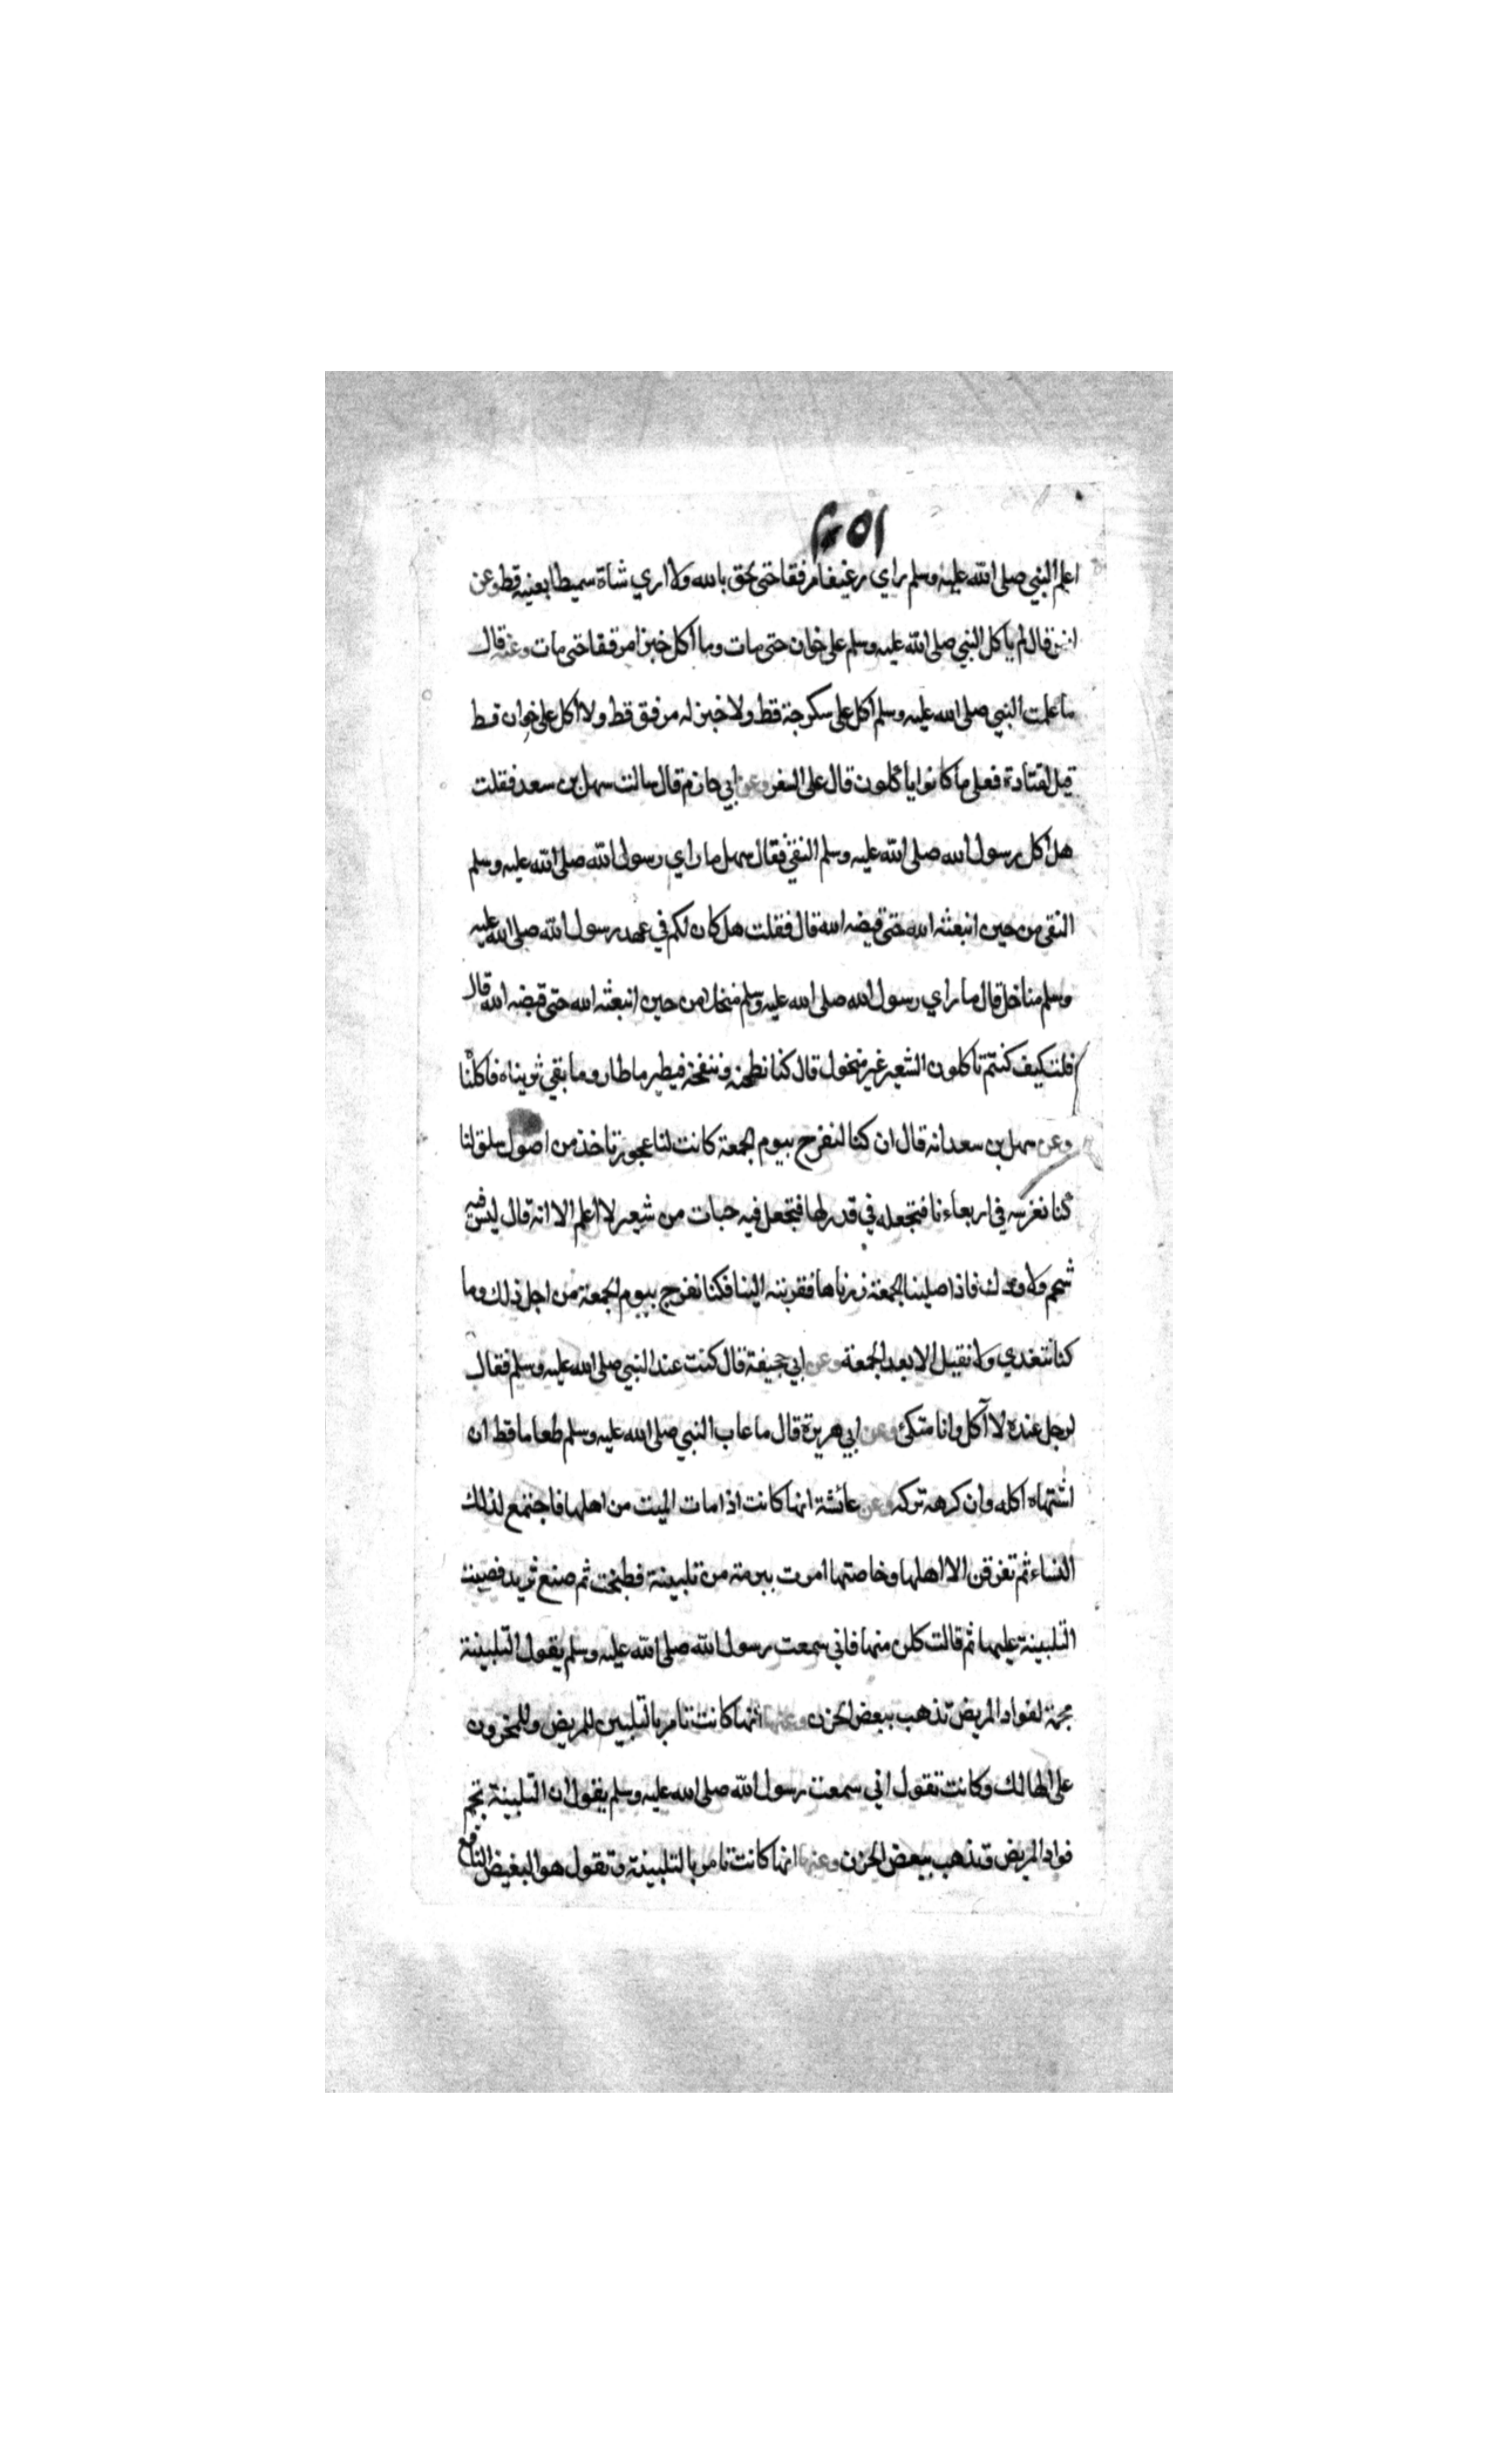 اعلم النبي صلى الله عليه وسلم راي رغيفا مرفقا حتى لحق بالله ولا اري شاة سميطا بعينيه قط وعن
انس قال لم ياكل النبي صلى الله عليه وسلم على خوان حتى مات وما اكل خبزا مرققا حتى مات وعنه قال
ما علمت النبي صلى الله عليه وسلم اكل على سكرجة قط ولا خبز له مرقق قط ولا اكل على خوان قط
قيل لقتادة فعلى ما كانوا ياكلون قال على السفر وعن ابي حازم قال سالت سهل بن سعد فقلت
هل اكل رسول الله صلى الله عليه وسلم النقي فقال سهل ما راي رسول الله صلى الله عليه وسلم
النقي من حين انبعثه الله حتى قبضه الله قال فقلت هل كان لكم في عهد رسول الله صلى الله عليه
وسلم مناخل قال ما راي رسول الله صلى الله عليه وسلم منخلا من حين انبعثه الله حتى قبضه الله قال
قلت كيف كنتم تاكلون الشعير غير منخول قال كنا نطحنه وننفخه فيطير ما طار وما بقي ثريناه فاكلنا
وعن سهل بن سعد انه قال ان كنا لنفرح بيوم الجمعة كانت لنا عجوز تاخذ من اصول سلق لنا
كنا نغرسه في اربعاءنا فتجعله في قدر لها فتجعل فيه حبات من شعير لا اعلم الا انه قال ليس فيه
شحم ولا ودك فاذا صلينا الجمعة زرناها فقربته الينا فكنا نفرح بيوم الجمعة من اجل ذلك وما
كنا نتغدي ولا نقيل الا بعد الجمعة وعن ابي جحيفة قال كنت عند النبي صلى الله عليه وسلم فقال
لرجل عنده لا آكل وانا متكئ وعن ابي هريرة قال ما عاب النبي صلى الله عليه وسلم طعاما قط ان
اشتهاه اكله وان كرهه تركه وعن عائشة انها كانت اذا مات الميت من اهلها فاجتمع لذلك
النساء ثم تفرقن الا اهلها وخاصتها امرت ببرمة من تلبينة فطبخت ثم صنع ثريد فصبت
التلبينة عليها ثم قالت كلن منها فاني سمعت رسول الله صلى الله عليه وسلم يقول التلبينة
مجمة لفواد المريض تذهب ببعض الحزن وعنها انها كانت تامر بالتلبين للمريض وللمحزون
على الهالك وكانت تقول اني سمعت رسول الله صلى الله عليه وسلم يقول ان التلبينة تجم
فواد المريض وتذهب ببعض الحزن وعنها انها كانت تامر بالتلبينة وتقول هو البغيض النافع